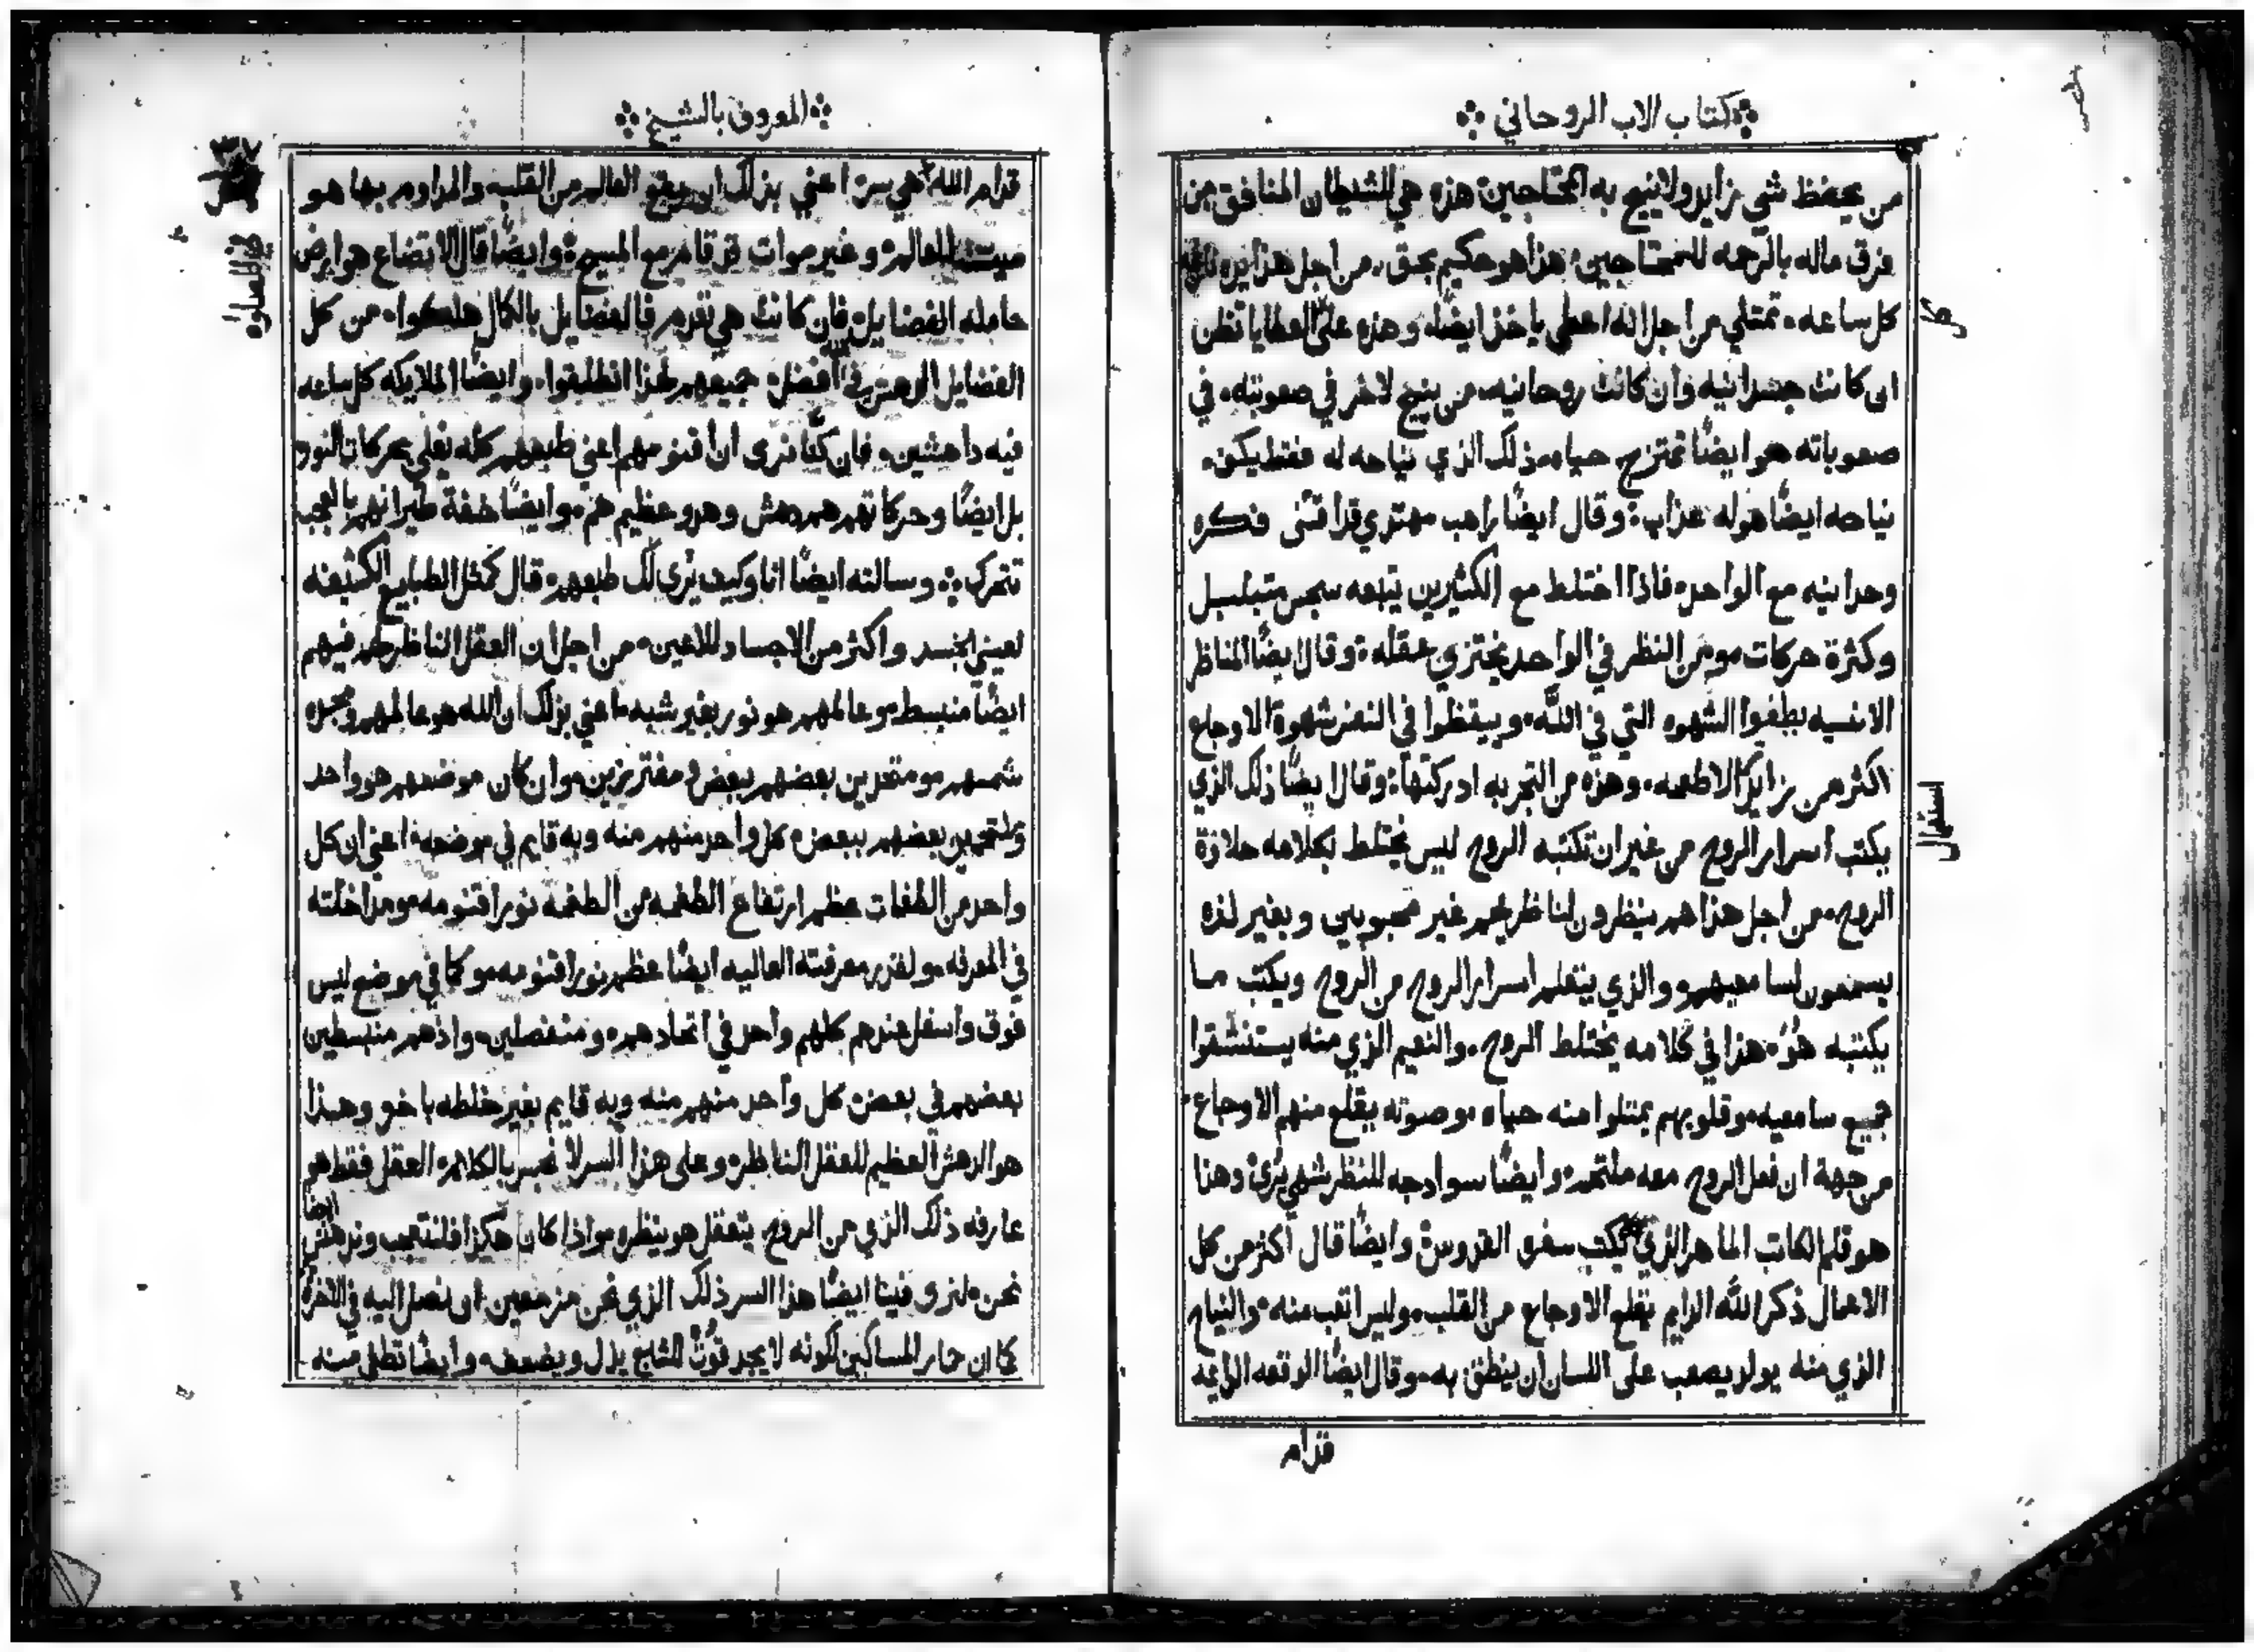 كتاب الاب الروحاني
من يحفظ شي زايد ولا ينيح به المحتاجين هذه هي للشيطان المنافق من
فرق ماله بالرحمه للمحتاجين هذا هو حكيم بحق من اجل هذا
كل ساعه تمتلي من اجل انه اعطى ياخذ ايضًا وهذه على العطايا تظن
ان كانت جسدانيه وان كانت روحانيه من ينيح لاخر في صعوبته في
صعوباته هو ايضًا تمتزج حياه ذلك الذي نياحه له فقط يكون
نياحه ايضًا هو له عذاب وقال ايضًا راهب مهتدي قد اقتنى فكره
وحدانيه مع الواحد فاذا اختلط مع الكثيرين يتبعه سجس متبلبل
وكثرة حركات ومن النظر في الواحد يختزي عقله وقال ايضًا المناظر
الانسيه يطفوا الشهوه التي في اللّه ويقظوا في النفس شهوة الاوجاع
اكثر من زايد الاطعمه وهذه من التجربه ادركتها وقال ايضًا ذلك الذي
يكتب اسرار الروح من غير ان تكتبه الروح ليس يختلط بكلامه حلاوة
الروح من اجل هذا هم ينظرون لناظريهم غير محبوبين وبغير لذه
يسمعون لسامعيهم والذي يتعلم اسرار الروح من الروح ويكتب ما
يكتبه هو هذا في كلامه يختلط الروح والنعيم الذي منه يستنشقوا
جميع سامعيه وقلوبهم يمتلوا منه حياه وصوته يقلع منهم الاوجاع
من جهة ان فعل الروح معه ملتحم وايضًا سواد وجه للنظر شهي يُرى وهنا
هو قلم الكاتب الماهر الذي يكتب سفر القدوس وايضًا قال اكثر من كل
الاعمال ذكر اللّه الدايم يقلع الاوجاع من القلب وليس اتعب منه والنياح
الذي منه يولد يصعب على اللسان ان ينطق به وقال ايضًا الوقفه الدايمه
قدام
كل
استمال
المعروف بالشيخ
قدام الله هي سر اعني بذلك ان يقع العالم من القلب والمداوم بها هو
ميت للعالم وغير موات قد قام مع المسيح وايضًا قال الاتضاع هو ارض
حامله الفضايل فان كانت هي تعدم فالفضايل بالكمال هلكوا من كل
الفضايل الدهش في الله افضل جميعهم لهذا انطلقوا وايضًا الملايكه كل ساعه
فيه داهشين فان كنّا نرى ان اقنومهم اعني طبعهم كله يغلي بحركات النور
بل ايضًا وحركاتهم هم دهش وهدو عظيم هم وايضًا لخفة طيرانهم بالعجب
تتحرك وسالته ايضًا انا وكيف يُرى لك طبعهم قال كمثل الطبايع الكثيفه
لعيني الجسد واكثر من الاجساد للاعين من اجل ان العقل الناظر لهم فيهم
ايضًا منبسط وعالمهم هو نور بغير شبه اعني بذلك ان الله هو عالمهم
شمسهم ومتحدين بعضهم ببعض ومفترزين وان كان موضعهم هو واحد
وملتحمين بعضهم ببعض كل واحد منهم منه وبه قايم في موضعه اعني ان كل
واحد من الطغمات عظم ارتفاع الطغمه من الطغمه نور اقنومه ومداخلته
في المعرفه ولقدر معرفته العاليه ايضًا عظم نور اقنومه وكما في موضع ليس
فوق واسفل عندهم كلهم واحد في اتحادهم ومنفصلين واذ هم منبسطين
بعضهم في بعض كل واحد منهم منه وبه قايم بغير خلطه باخر وهذا
هو الدهش العظيم للعقل الناظر وعلى هذا السر لا نجسر بالكلام العقل فقط هو
عارفه ذلك الذي من الروح يتعقل هو ينظره واذا كان هكذا فلنتعجب وندهش ايضا
نحن لنرى فينا ايضًا هذا السر ذلك الذي نحن مزمعين ان نصل اليه في الاخرة
كما ان حمار المساكين لكونه لا يجد قوتُ للشبع يذل ويضعف وايضًا تطلى منه
٣٧